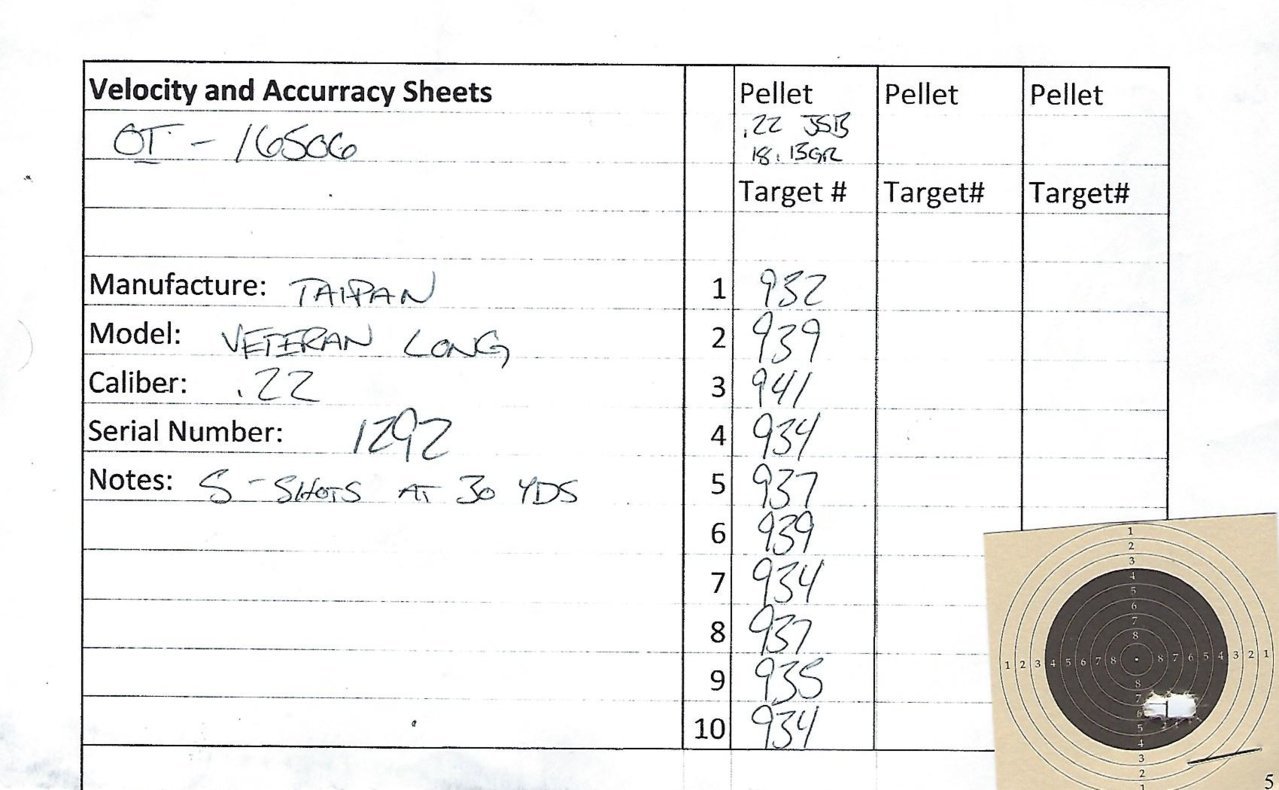 Velocity and Accurracy Sheets
OT - 16506
Pellet
.22 JSB
18.13GR
Target #
Pellet
Target#
Pellet
Target#
Manufacture: TAIPAN
Model: VETERAN LONG
Caliber: .22
Serial Number: 1292
Notes: 5-SHOTS AT 30 YDS
1 932
2 939
3 941
4 934
5 937
6 939
7 934
8 937
9 935
10 934
1
2
3
4
5
6
7
8
1 2 3 4 5 6 7 8 8 7 6 5 4 3 2 1
8
7
6
5
4
3
2
1
5